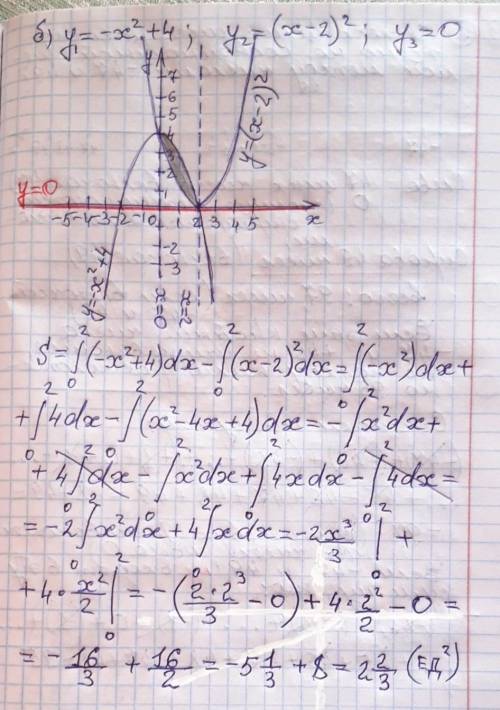 б) y₁=-x²+4; y₂=(x-2)²; y₃=0
y
7
6
5
4
3
2
1
y=0
-5 -4 -3 -2 -1 0 1 2 3 4 5 x
-2
-3
y=(x-2)²
y=-x²+4
x=0
x=2
S=∫₀²(-x²+4)dx-∫₀²(x-2)²dx=∫₀²(-x²)dx+
+∫₀²4dx-∫₀²(x²-4x+4)dx=-∫₀²x²dx+
+4∫₀²dx-∫₀²x²dx+∫₀²4xdx-∫₀²4dx=
=-2∫₀²x²dx+4∫₀²xdx=-2x³/3|₀²+
+4·x²/2|₀²=-(2·2³/3-0)+4·2²/2-0=
=-16/3+16/2=-5 1/3+8=2 2/3 (ЕД²)